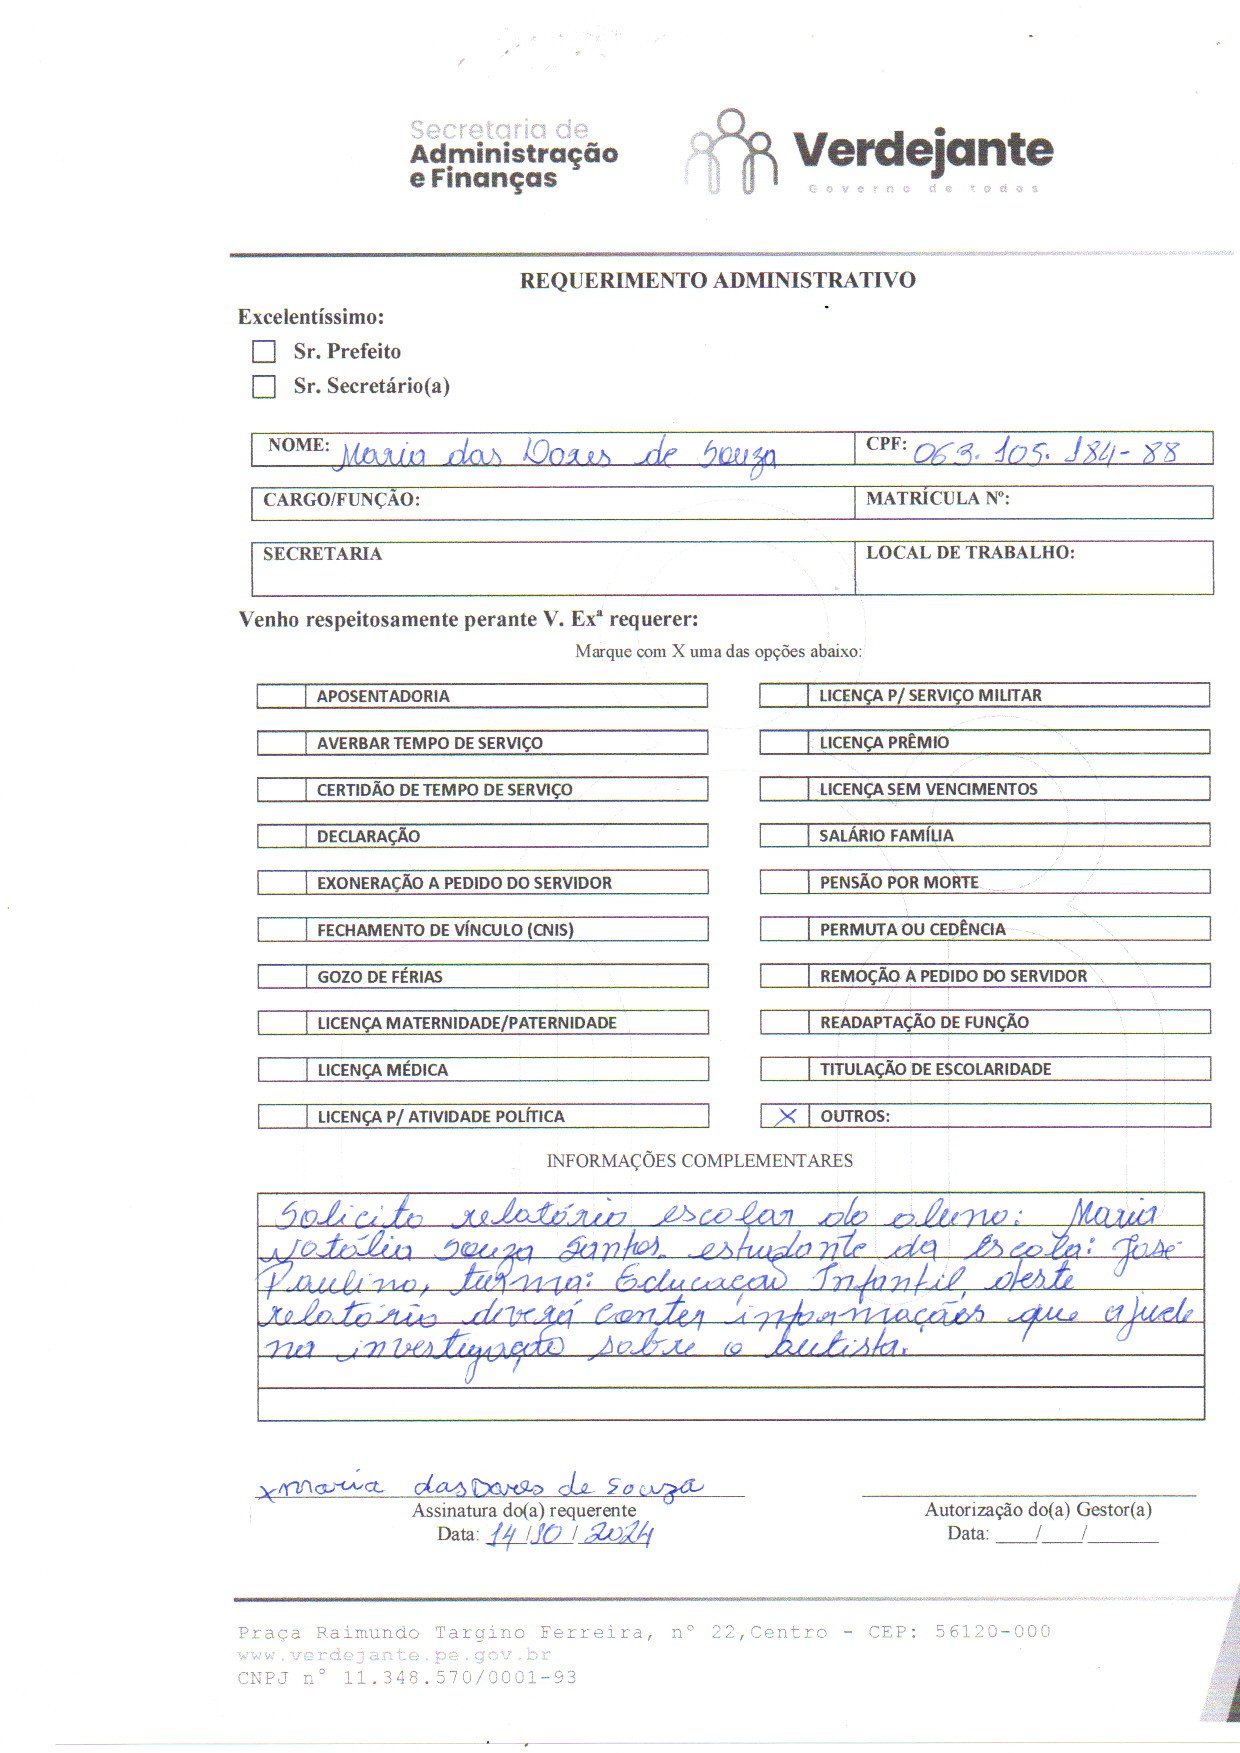 Secretaria de
Administração
e Finanças
Verdejante
Governo de todos
REQUERIMENTO ADMINISTRATIVO
Excelentíssimo:
Sr. Prefeito
Sr. Secretário(a)
NOME: Maria das Dores de Souza CPF: 063.105.184-88
CARGO/FUNÇÃO: MATRÍCULA Nº:
SECRETARIA LOCAL DE TRABALHO:
Venho respeitosamente perante V. Exª requerer:
Marque com X uma das opções abaixo:
APOSENTADORIA LICENÇA P/ SERVIÇO MILITAR
AVERBAR TEMPO DE SERVIÇO LICENÇA PRÊMIO
CERTIDÃO DE TEMPO DE SERVIÇO LICENÇA SEM VENCIMENTOS
DECLARAÇÃO SALÁRIO FAMÍLIA
EXONERAÇÃO A PEDIDO DO SERVIDOR PENSÃO POR MORTE
FECHAMENTO DE VÍNCULO (CNIS) PERMUTA OU CEDÊNCIA
GOZO DE FÉRIAS REMOÇÃO A PEDIDO DO SERVIDOR
LICENÇA MATERNIDADE/PATERNIDADE READAPTAÇÃO DE FUNÇÃO
LICENÇA MÉDICA TITULAÇÃO DE ESCOLARIDADE
LICENÇA P/ ATIVIDADE POLÍTICA X OUTROS:
INFORMAÇÕES COMPLEMENTARES
Solicito relatório escolar do aluno: Maria
Natália Souza Santos, estudante da escola: José
Paulino, turma: Educação Infantil, deste
relatório deverá conter informaçãos que ajude
na investigação sobre o autista.
x Maria das Dores de Souza
Assinatura do(a) requerente Autorização do(a) Gestor(a)
Data: 14/10/2024 Data: ____/____/_______
Praça Raimundo Targino Ferreira, nº 22,Centro - CEP: 56120-000
www.verdejante.pe.gov.br
CNPJ n° 11.348.570/0001-93